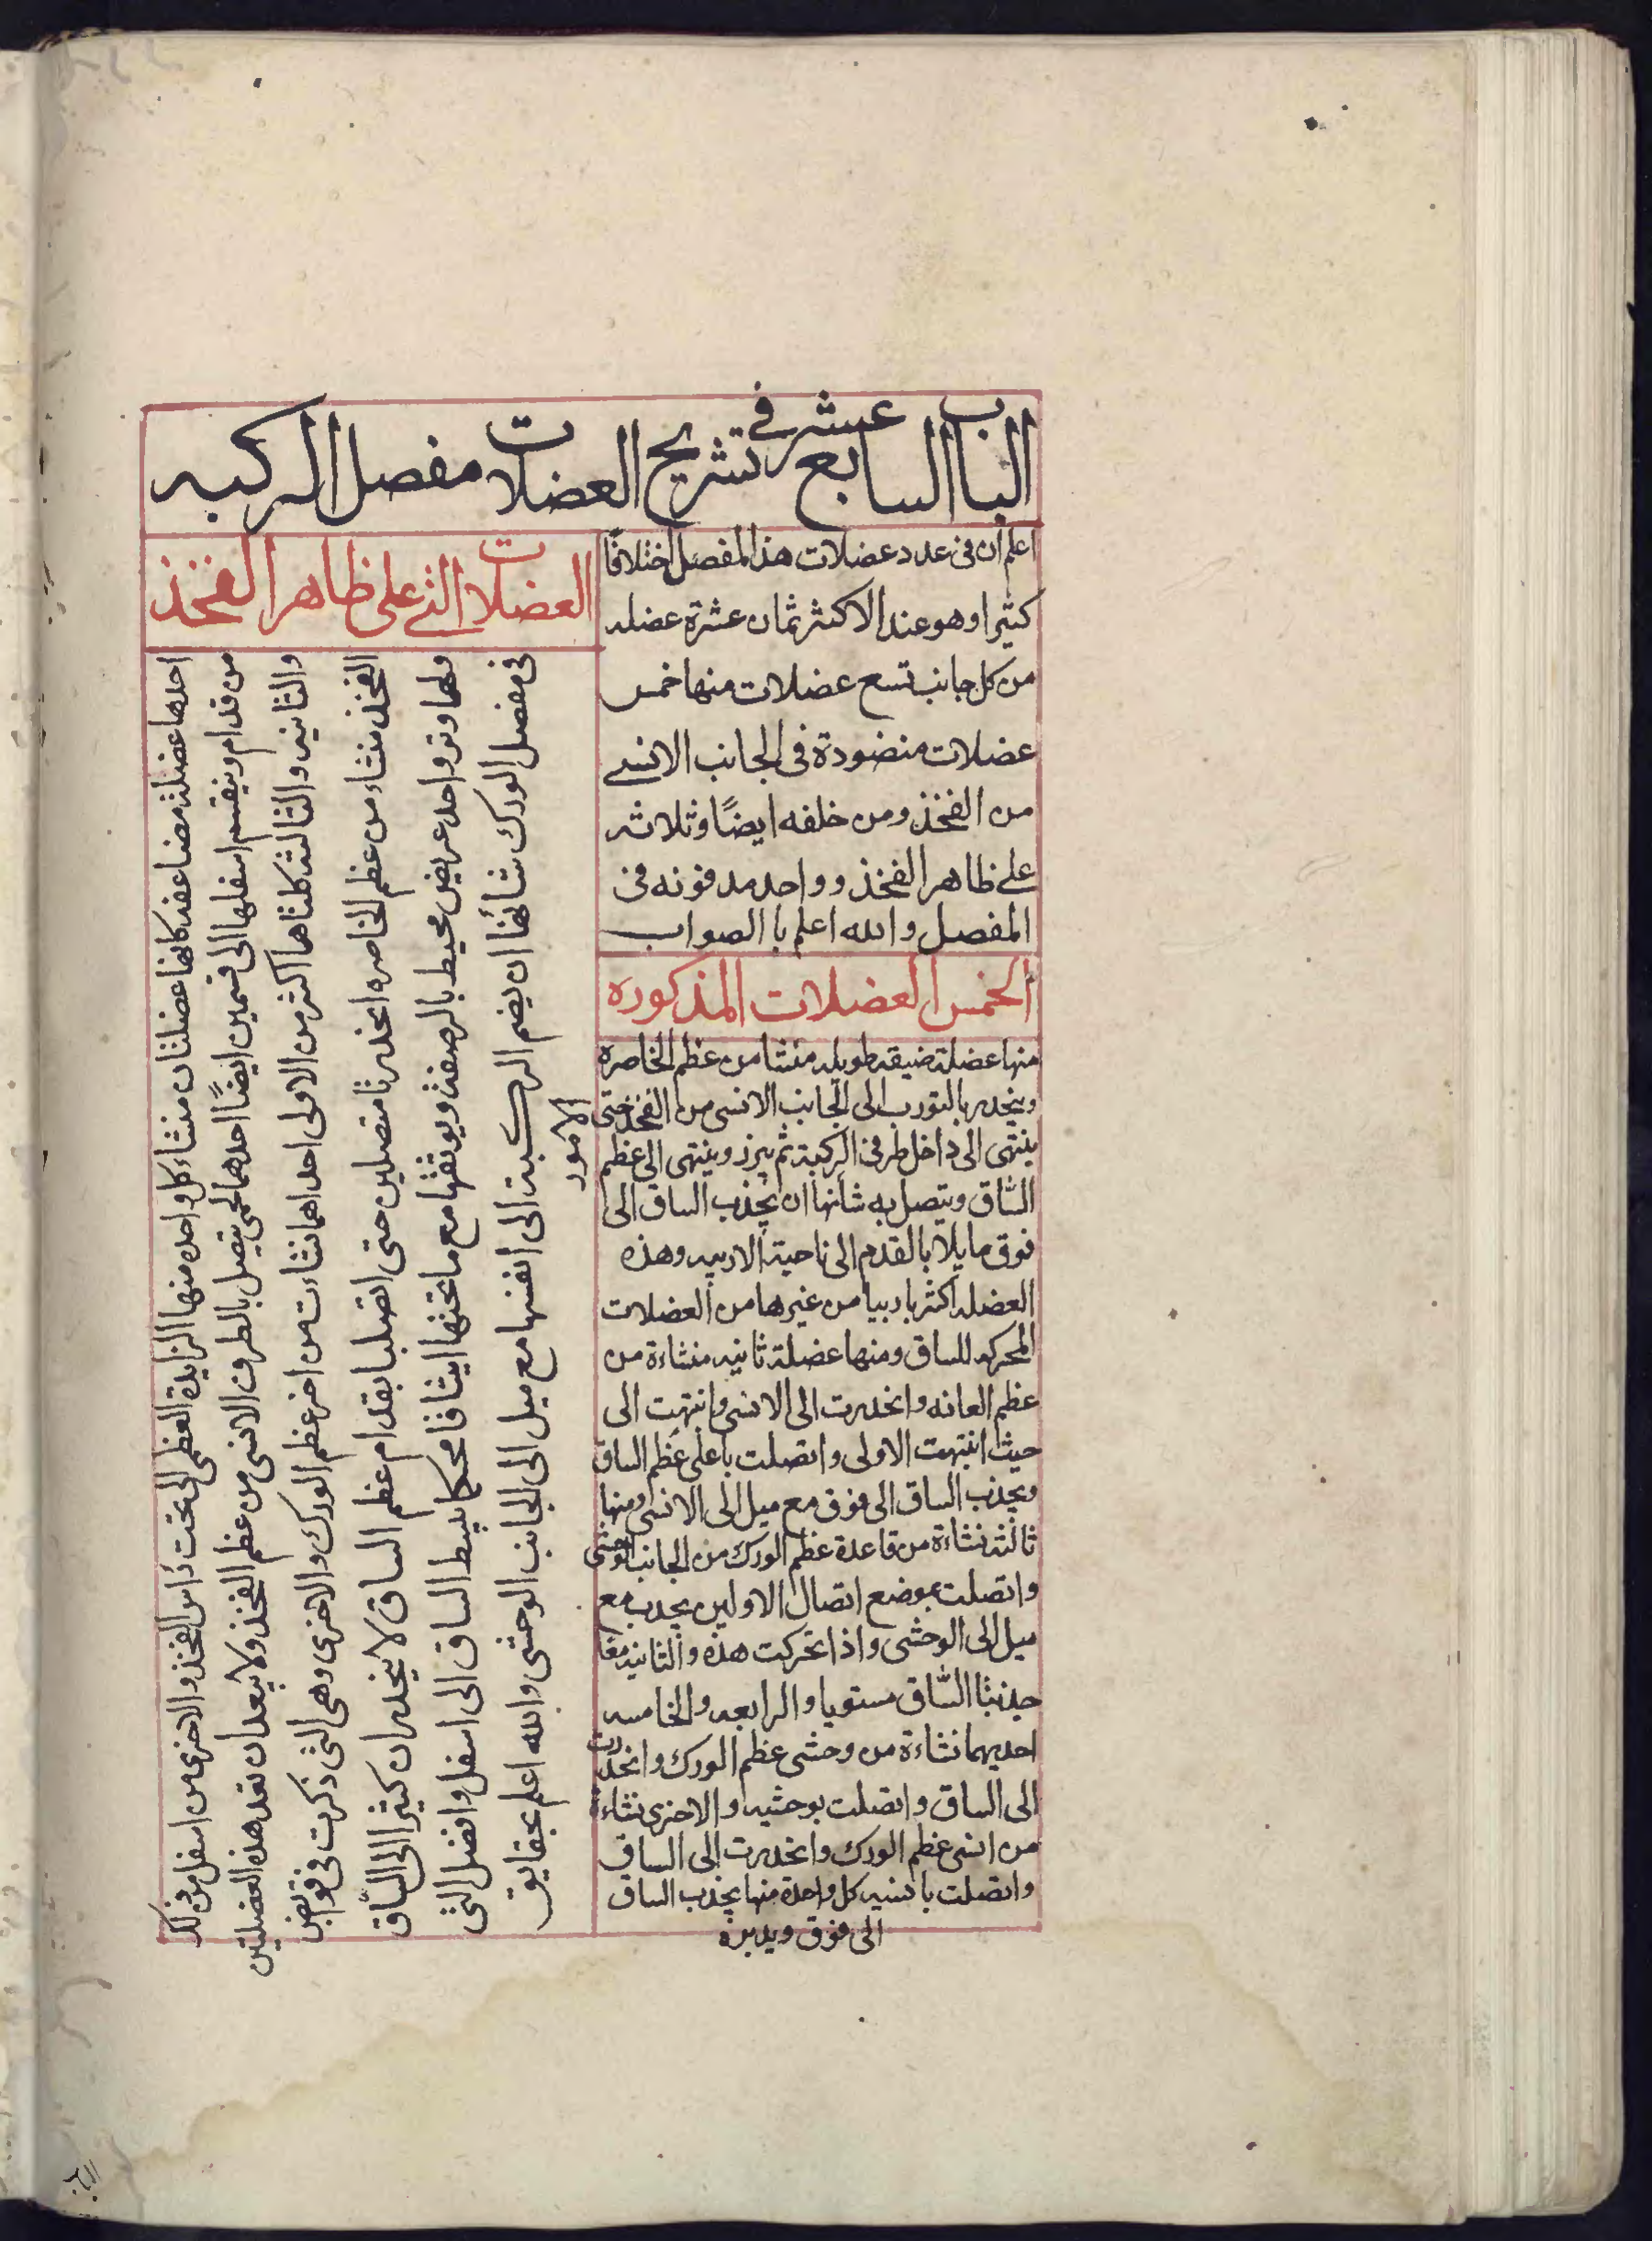 الباب السابع عشر في تشريح العضلات مفصل الركبه
اعلم ان فى عدد عضلات هذا المفصل اختلافًا
كثيرا وهو عند الاكثر ثمان عشرة عضله
من كل جانب تسع عضلات منها خمس
عضلات منضودة فى الجانب الانسى
من الفخذ ومن خلفه ايضًا وثلاثه
على ظاهر الفخذ وواحد مدفونه فى
المفصل والله اعلم با الصواب
الخمس العضلات المذكوره
منها عضلة ضيقه طويله منشا من عظم الخاصره
وينحدر بالتورب الى الجانب الانسى من الفخذ حتى
ينتهى الى داخل طرفى الركبة ثم يبرز وينتهى الى عظم
السّاق ويتصل به شانها ان يجذب الساق الى
فوق مايلا بالقدم الى ناحية الاربيه وهذه
العضله اكثر باديبا من غيرها من العضلات
المحركه للساق ومنها عضلة ثانيه منشاءة من
عظم العانه وانحدرت الى الانسى وانتهت الى
حيث انتهت الاولى واتصلت باعلى عظم الساق
ويجذب الساق الى فوق مع ميل الى الانسى ومنها
ثالثه نشاءة من قاعدة عظم الورك من الجانب الوحشى
واتصلت بموضع اتصال الاولين يجذب مع
ميل الى الوحشى واذا تحركت هذه والثانيه معًا
جذبتا السّاق مستويا والرابعه والخامسه
احديهما نشاءة من وحشى عظم الورك وانحدرت
الى الساق واتصلت بوحشيه والاخرى نشاءة
من انسى عظم الورك وانحدرت الى الساق
واتصلت بانسيه كل واحدة منها يجذب الساق
الى فوق ويديره
العضلات التى على ظاهر الفخذ
احدها عضلة مضاعفه كانها عضلتان منشاء كل واحده منها الزايدة العظمى التى تحت رأس الفخذ والاخرى من اسفل من ذلك
من قدام وينقسم اسفلها الى قسمين ايضًا احدهما لحمى يتصل بالطرف الانسى من عظم الفخذ ولا يبعد ان تعد هذه العضلتين
والثانيه والثالثه كلتاهما اكثر من الاولى احداهما نشاءت من اخر عظم الورك والاخرى وهى التى ذكرت فى قوابض
الفخذ منشاء من عظم الخاصره انحدرتا متصلين حتى اتصلبا بقدام عظم الساق لا ينحدران كثيرا الى السّاق
ولهما وتر واحد عريض محيط بالرصفة ويوثقها مع ما تحتها ايثاقا محكما يبسط الساق الى اسفل وافضل التى
فى مفصل الورك شأنها ان يضم الركبة الى انفسها مع ميل الى الجانب الوحشى والله اعلم بحقايق
الامور